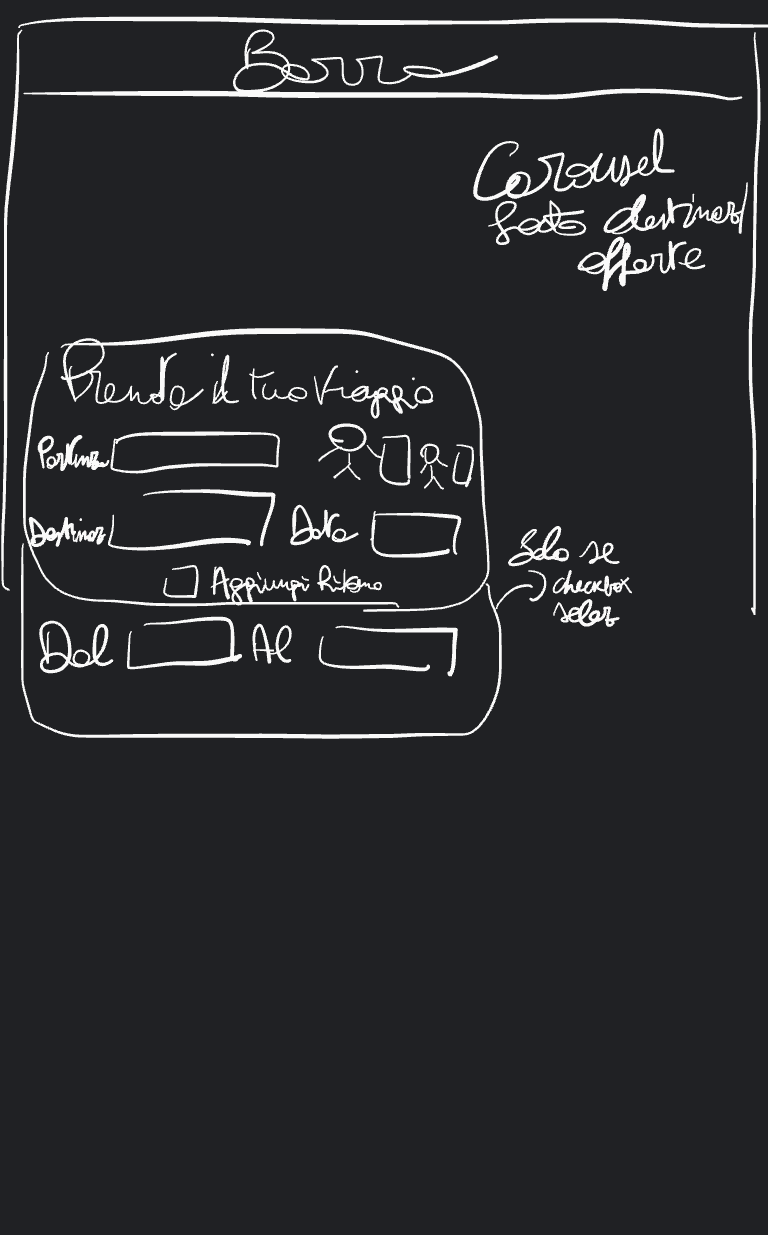 Barra
Carousel
foto destinaz/
offerte
Prenota il tuo Viaggio
Partenza
Destinaz Data
Aggiungi Ritorno
Solo se
checkbox
selez
Dal Al